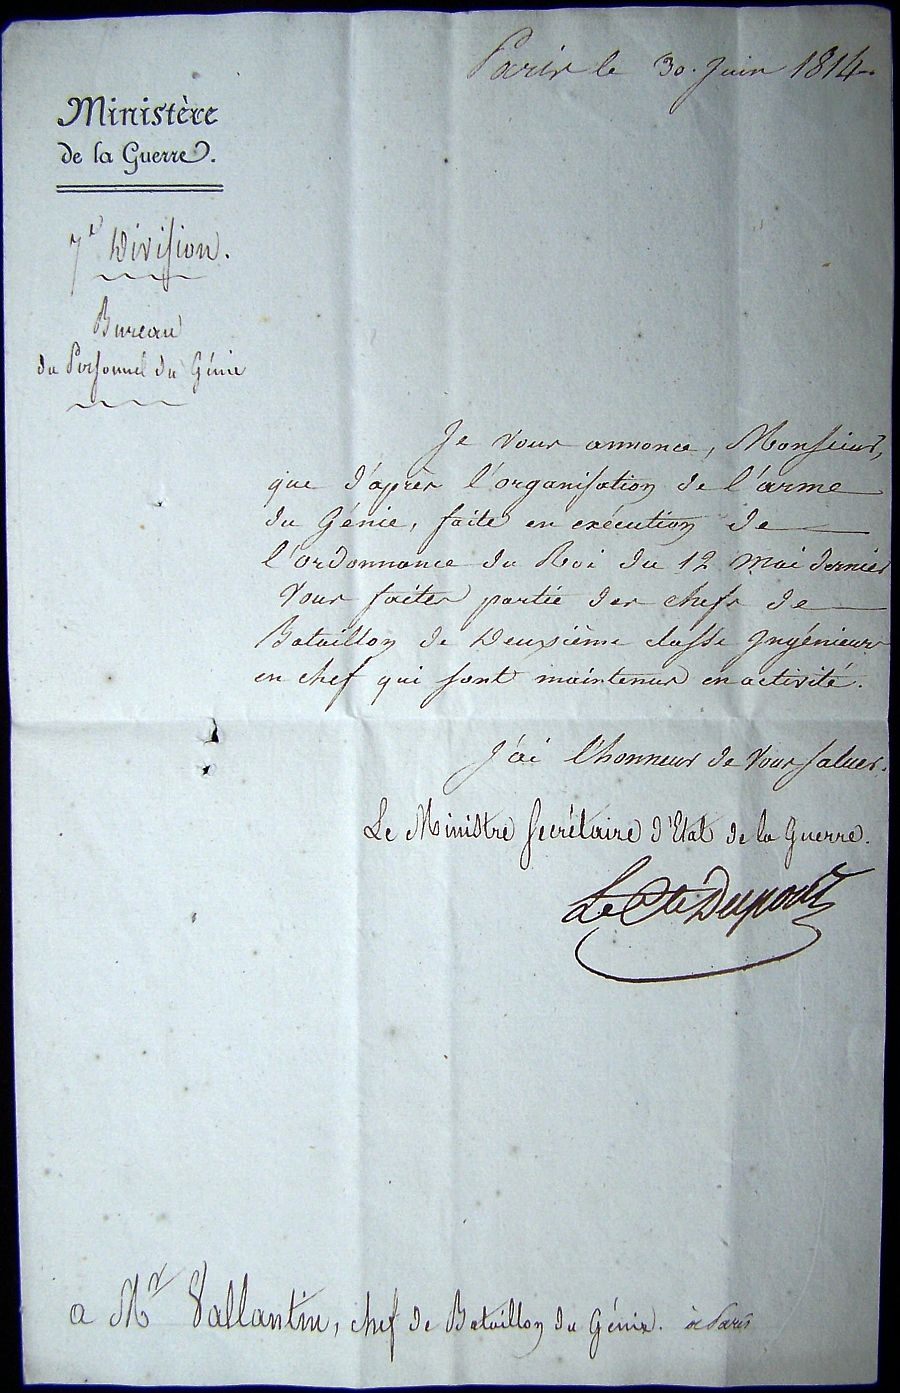 Paris le 30. Juin 1814.
Ministère
de la Guerre.
7e Division.
Bureau
du Personnel du Génie
Je vous annonce, Monsieur,
que d'après l'organisation de l'arme
du Génie, faite en exécution de
l'ordonnance du Roi du 12 Mai dernier
Vous faites partie des chefs de
Bataillon de Deuxième classe Ingénieurs
en chef qui sont maintenus en activité.
J'ai l'honneur de Vous saluer.
Le Ministre Secrétaire d'Etat de la Guerre.
Le Cte Dupont
a Mr Vallantin, chef de Bataillon du Génie. à Paris